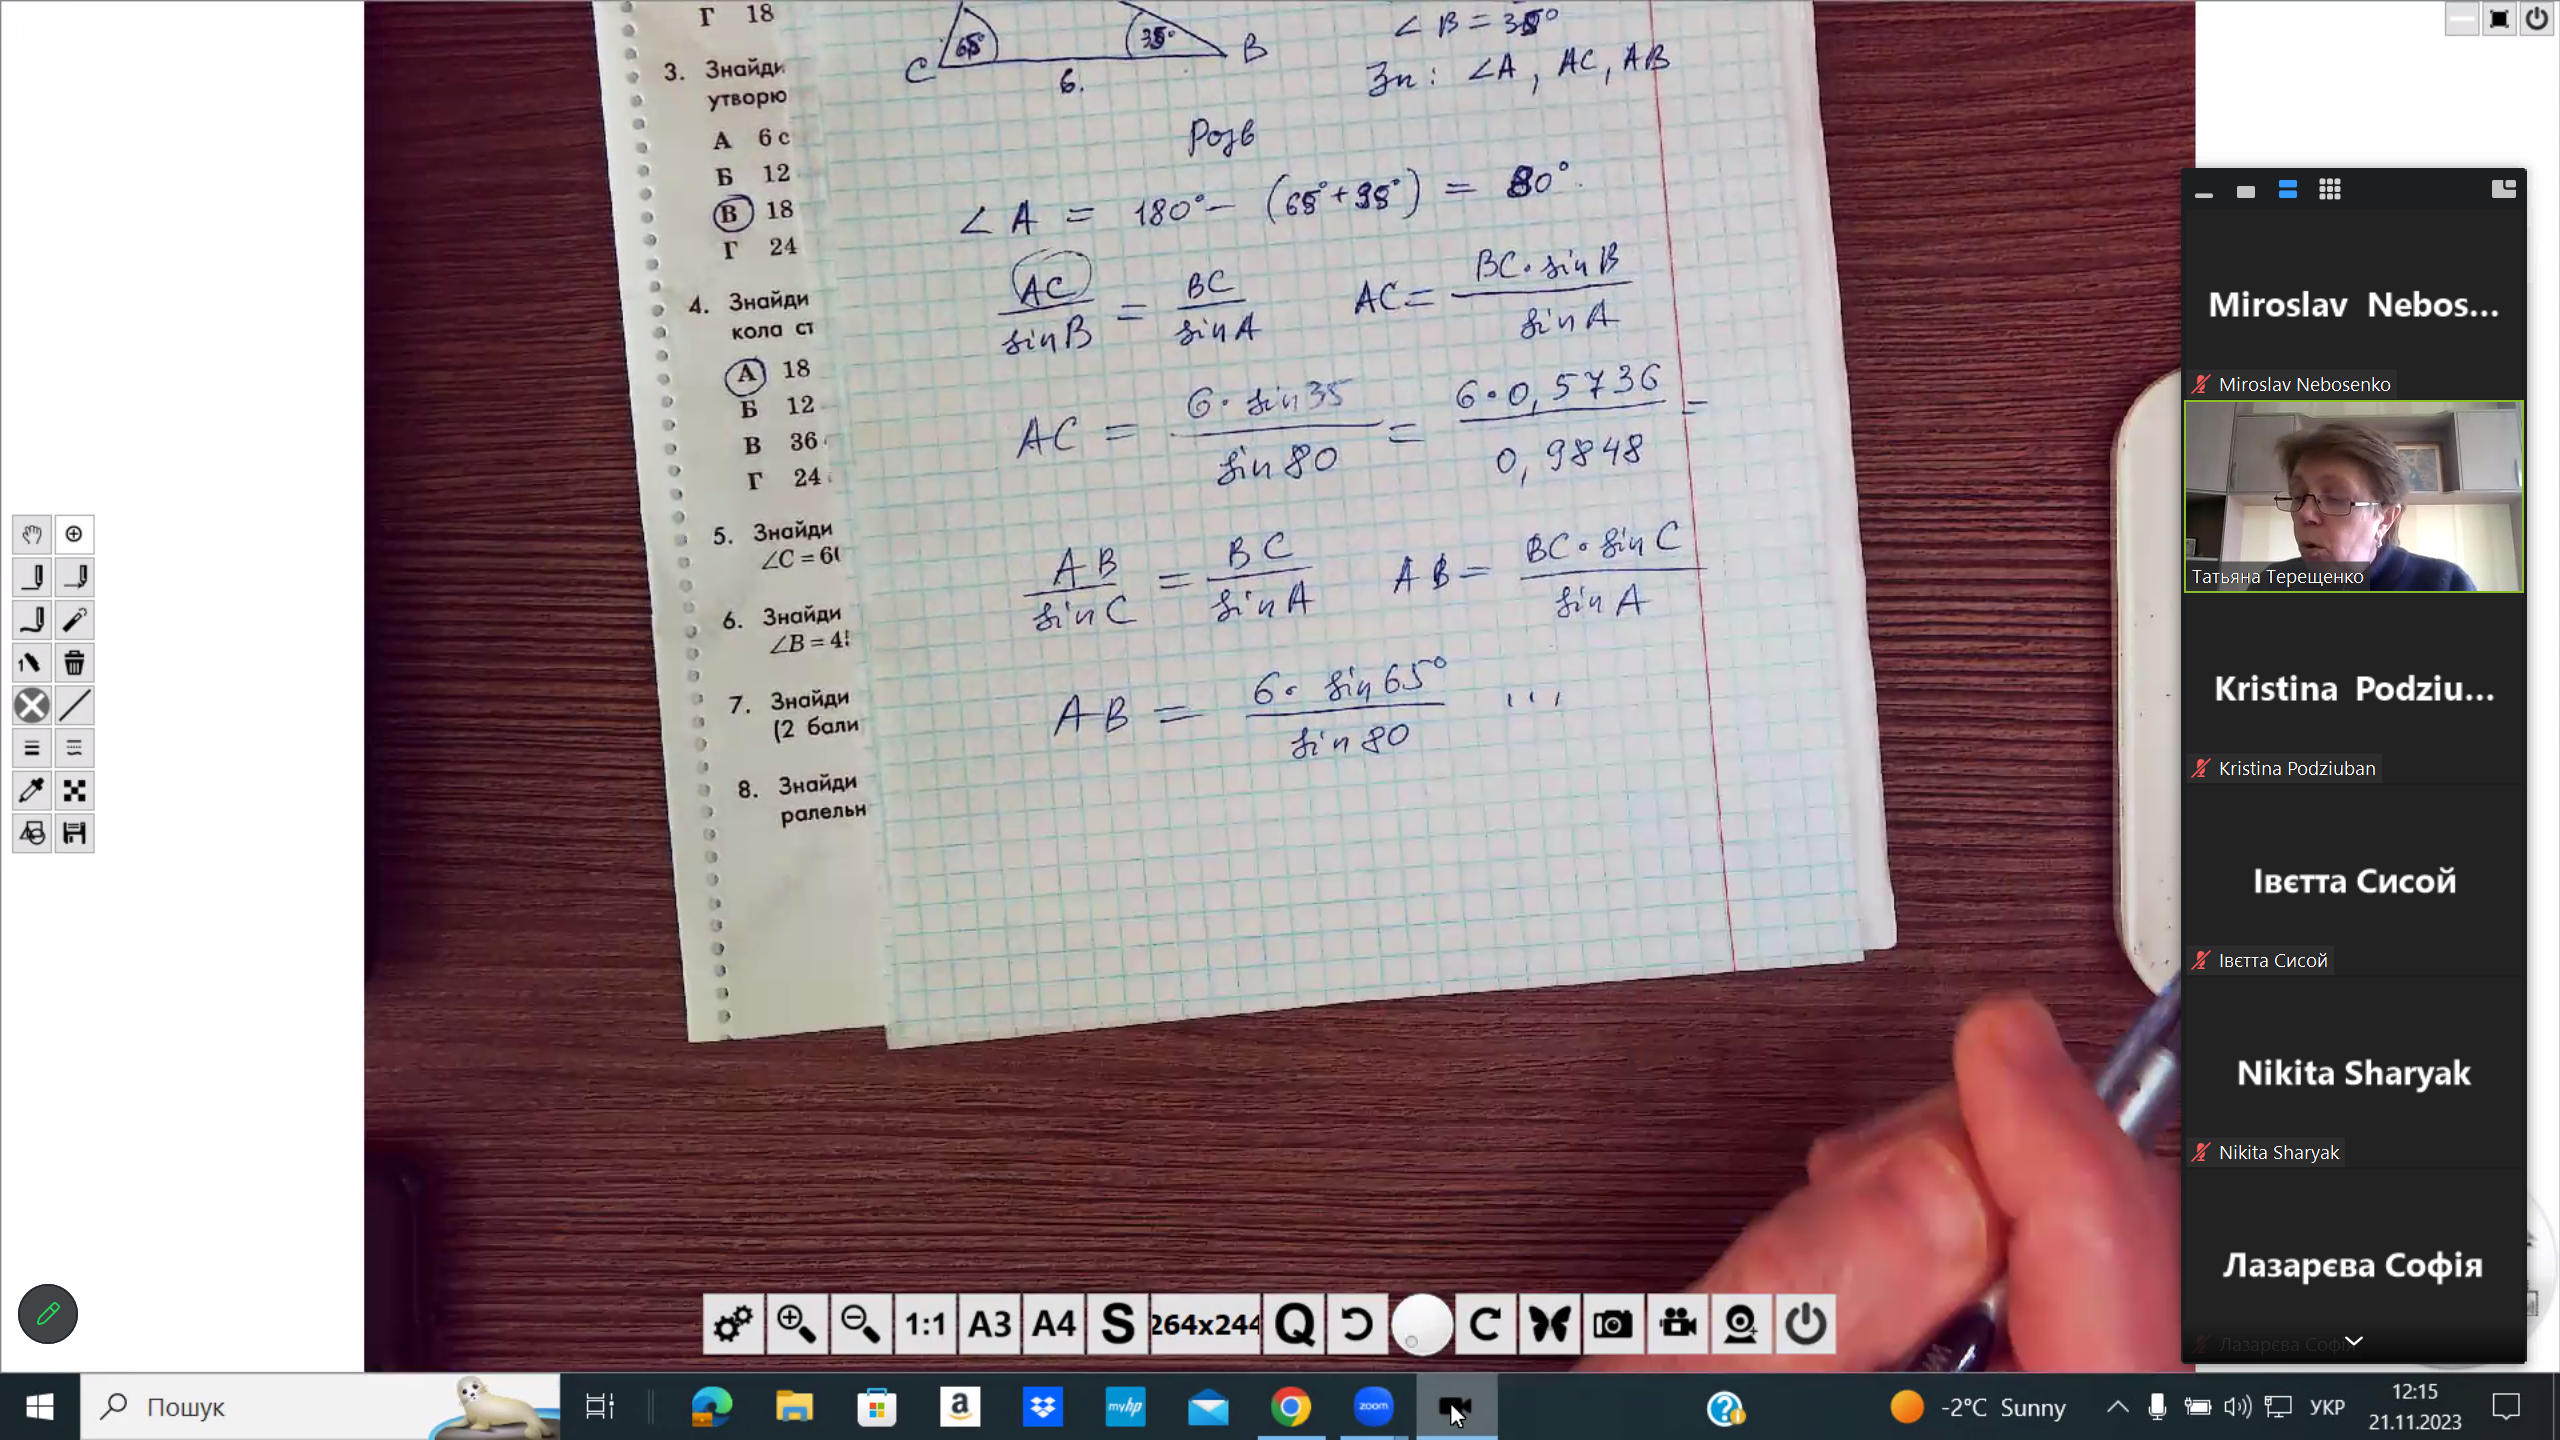 Г 18
3. Знайди
утворю
А 6 с
Б 12
В 18
Г 24
4. Знайди
кола ст
А 18
Б 12
В 36
Г 24
5. Знайди
∠C = 60
6. Знайди
∠B = 4
7. Знайди
(2 бали
8. Знайди
ралельн
C 65° 35° B
6.
∠ B = 35°
Зн: ∠A, AC, AB
Розв
∠ A = 180° − (65° + 35°) = 80°.
AC / sin B = BC / sin A AC = BC · sin B / sin A
AC = 6 · sin 35 / sin 80 = 6 · 0,5736 / 0,9848 =
AB / sin C = BC / sin A AB = BC · sin C / sin A
AB = 6 · sin 65° / sin 80 ...
Miroslav Nebos...
Miroslav Nebosenko
Татьяна Терещенко
Kristina Podziu...
Kristina Podziuban
Івєтта Сисой
Івєтта Сисой
Nikita Sharyak
Nikita Sharyak
Лазарєва Софія
Лазарєва Софія
1:1 A3 A4 S 264x244 Q
Пошук
a
myhp
zoom
-2°C Sunny
УКР
12:15
21.11.2023